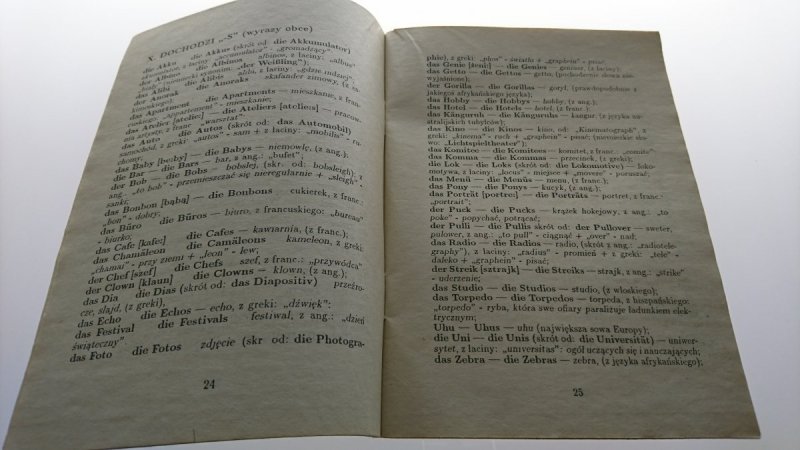 X. DOCHODZI „S" (wyrazy obce)
die Akku die Akkus (skrót od: die Akkumulator)
akumulator, z łaciny „accumulator" - „gromadzący"
der Albino die Albinos albinos, z łaciny: „albus"
synonim: „der Weißling");
das Alibi die Alibis alibi, z łaciny: „gdzie indziej"
der Anorak die Anoraks skafander zimowy, (z
das Apartment die Apartments — mieszkanie, z fran-
„appartement" - mieszkanie;
das Atelier [atelie] die Ateliers [ateliers] — pracow-
nia artysty, z franc. - „warsztat";
das Auto die Autos (skrót od: das Automobil)
samochód, z greki: „autos" - sam + z łaciny: „mobilis" - ru-
chomy;
das Baby [be:by] — die Babys — niemowlę, (z ang.);
die Bar — die Bars — bar, z ang.: „bufet";
der Bob — die Bobs — bobslej, (skr. od: bobsleigh); z
ang. „to bob" - przemieszczać się nieregularnie + „sleigh" -
sanki;
das Bonbon die Bonbons — cukierek, z franc.
„bon" - dobry;
das Büro die Büros — biuro, z francuskiego: „bureau"
- biurko;
das Cafe [kafee] die Cafes — kawiarnia, (z franc.);
das Chamäleon die Camäleons kameleon, z greki
„chamai" - przy ziemi + „leon" - lew;
der Chef [szef] die Chefs szef, z franc.: „przywódca"
der Clown [klaun] die Clowns — klown, (z ang.);
das Dia die Dias (skrót od: das Diapositiv) przeźro-
cze, slajd, (z greki),
das Echo die Echos — echo, z greki: „dźwięk";
das Festival die Festivals festiwal, z ang.: „dzień
świąteczny"
das Foto die Fotos zdjęcie (skr od: die Photogra-
24
phie), z greki: „phos" - światło + „graphein" - pisać;
das Genie [żeni:] — die Genies — geniusz, (z łaciny);
das Getto — die Gettos — getto, (pochodzenie słowa nie-
wyjaśnione);
der Gorilla — die Gorillas — goryl, (prawdopodobnie z
jakegoś afrykańskiego języka);
das Hobby — die Hobbys — hobby, (z ang.);
das Hotel — die Hotels — hotel, (z franc.);
das Känguruh — die Känguruhs — kangur, (z języka au-
stralijskich tubylców);
das Kino — die Kinos — kino, od: „Kinematograph", z
greki: „kinema" - ruch + „graphein" - pisać; (niemieckie sło-
wo: „Lichtspieltheater");
das Komitee — die Komitees — komitet, z franc. „comité"
das Komma — die Kommas — przecinek, (z greki);
die Lok — die Loks (skrót od: die Lokomotive) — loko-
motywa, z łaciny: „locus" - miejsce + „movere" - poruszać;
das Menü — die Menüs — menu, (z franc.);
das Pony — die Ponys — kucyk, (z ang.);
das Porträt [portre:] — die Porträts — portret, z franc.:
„portrait";
der Puck — die Pucks — krążek hokejowy, z ang.: „to
poke" - popychać, potrącać;
der Pulli — die Pullis skrót od: der Pullover — sweter,
pulower, z ang.: „to pull" - ciągnąć + „over" - nad;
das Radio — die Radios — radio, (skrót z ang.: „radiotele-
graphy"), z łaciny: „radius" - promień + z greki: „tele" -
daleko + „graphein" - pisać;
der Streik [sztrajk] — die Streiks — strajk, z ang.: „strike"
- uderzenie;
das Studio — die Studios — studio, (z włoskiego);
das Torpedo — die Torpedos — torpeda, z hiszpańskiego:
„torpedo" - ryba, która swe ofiary paraliżuje ładunkiem elek-
trycznym;
Uhu — Uhus — uhu (największa sowa Europy);
die Uni — die Unis (skrót od: die Universität) — uniwer-
sytet, z łaciny: „universitas": ogół uczących się i nauczających;
das Zebra — die Zebras — zebra, (z języka afrykańskiego);
25